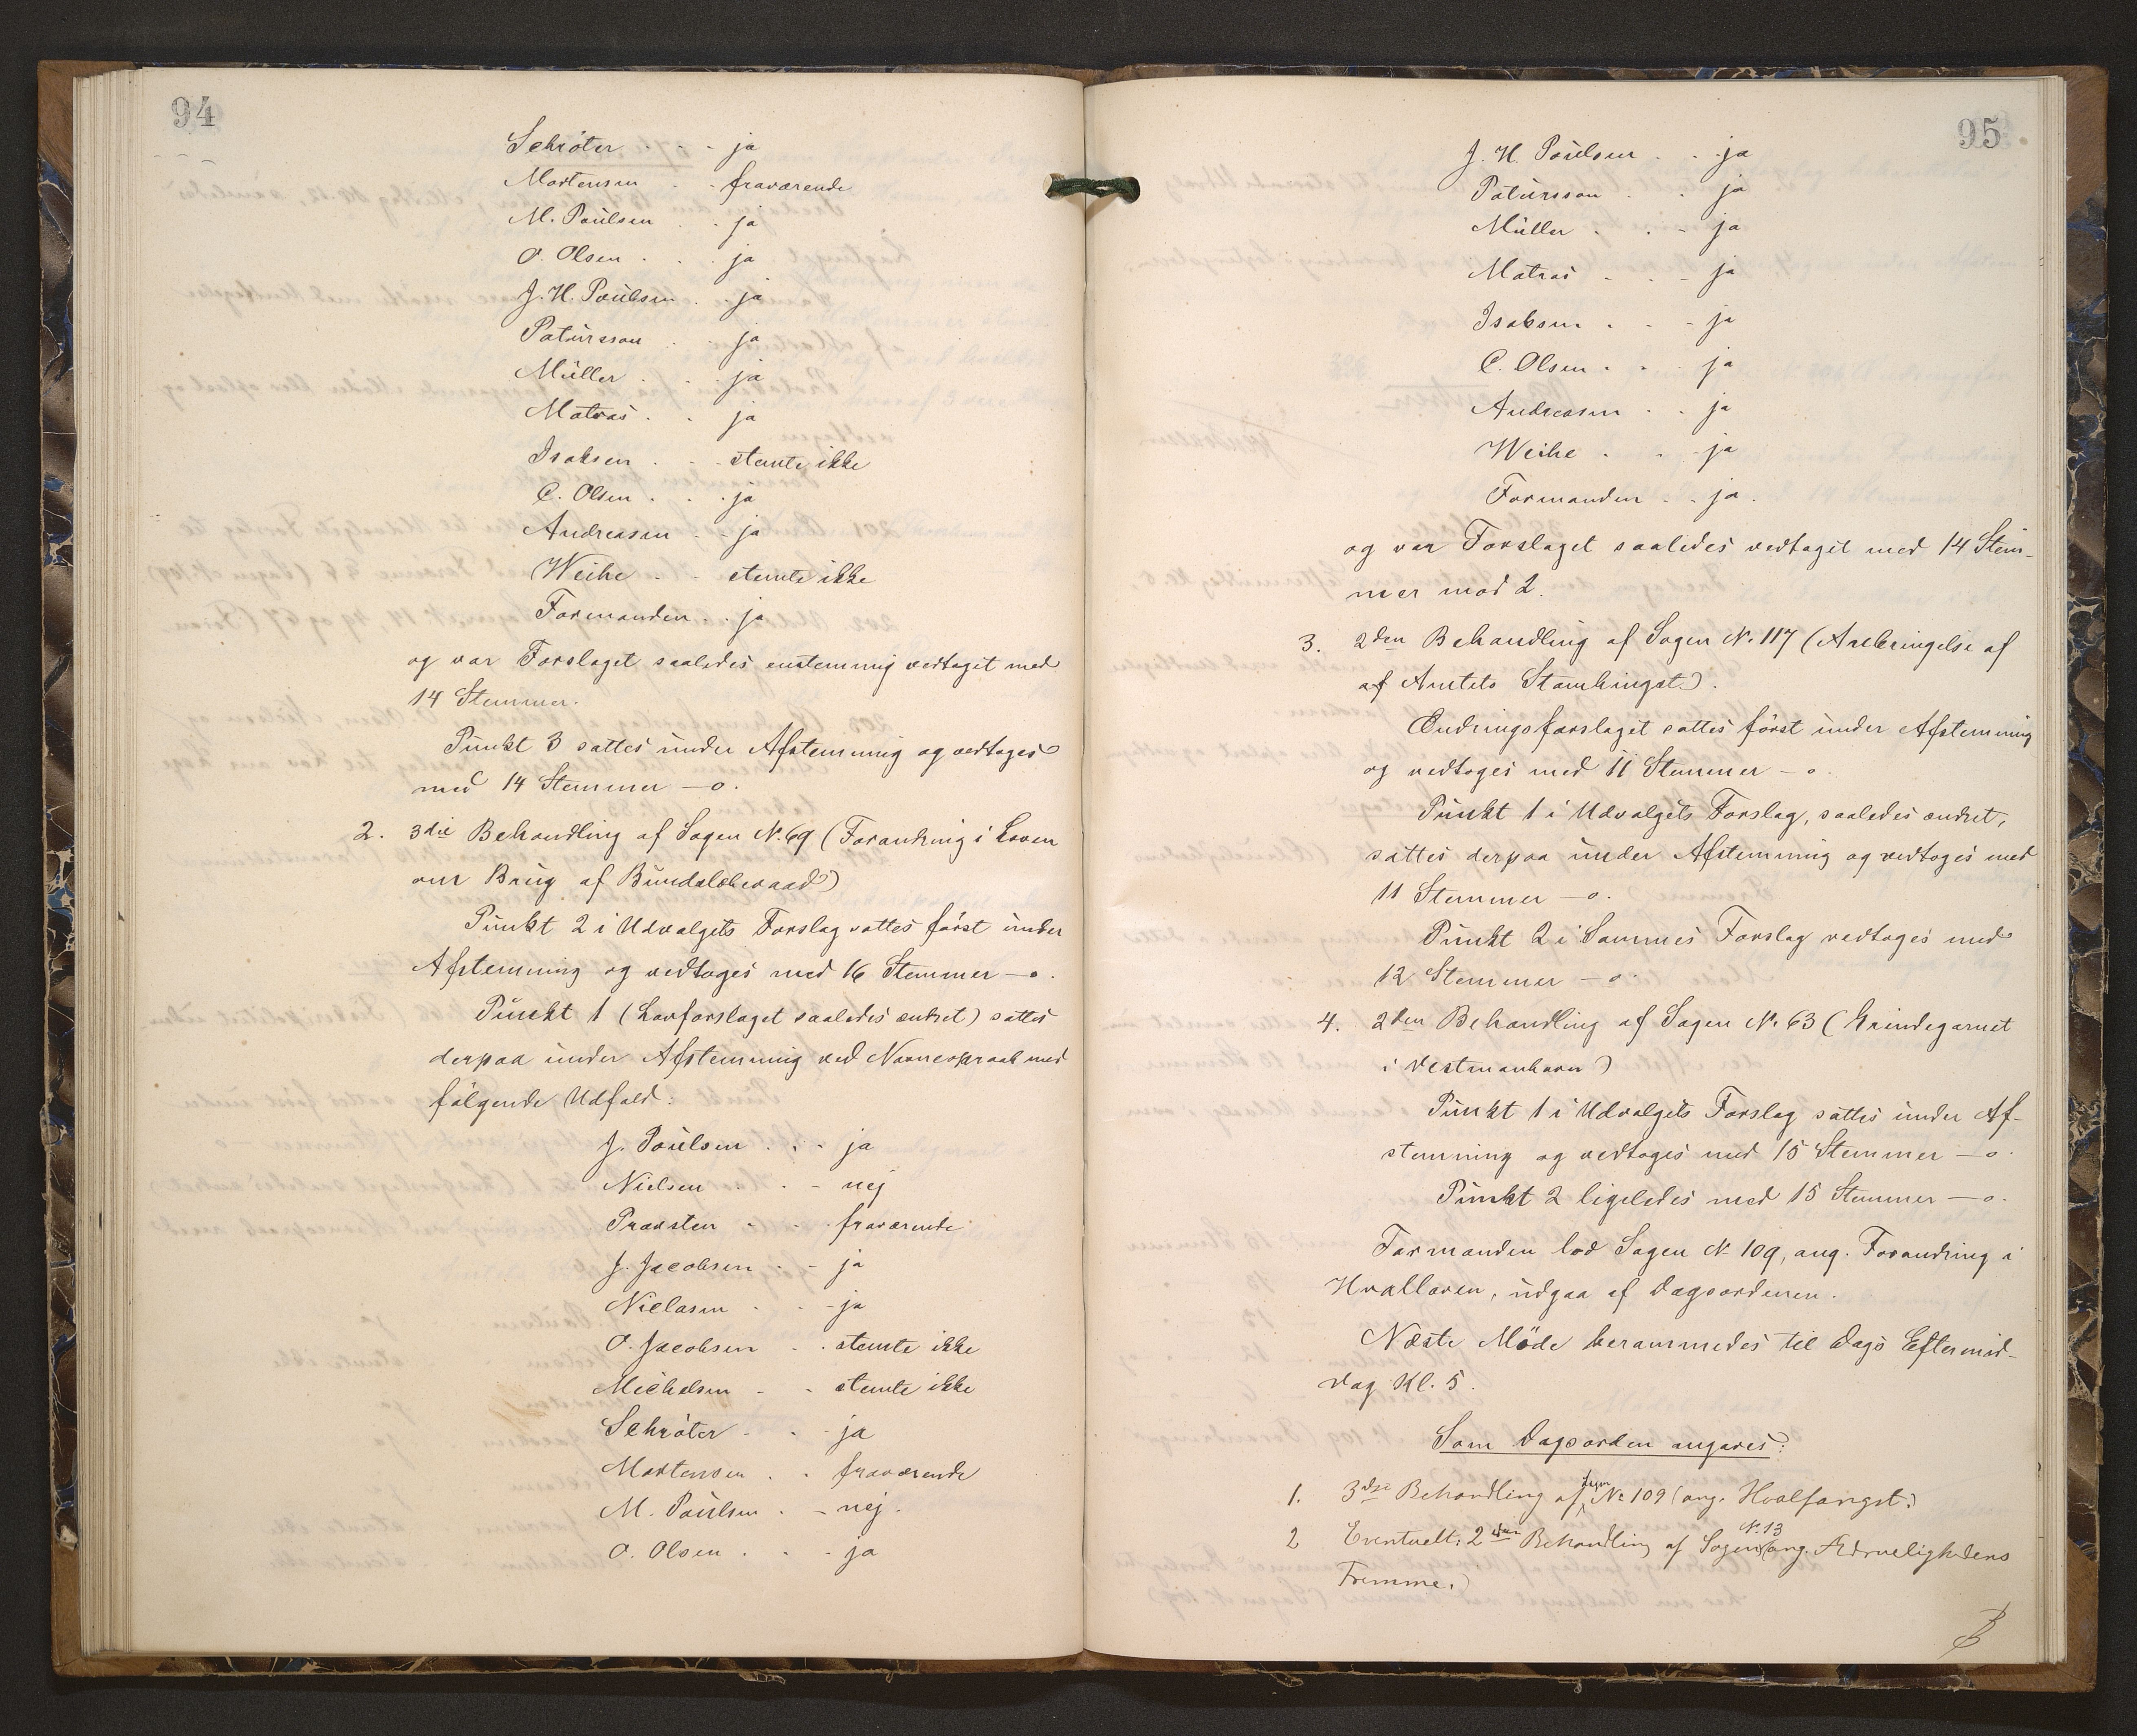 94
Schröter - - - ja
Mortensen - - fraværende
M. Poulsen - - ja
O. Olsen - - - ja
J. H. Poulsen - - ja
Patursson - - ja
Müller - - - ja
Matras - - ja
Isaksen - - - stemte ikke
C. Olsen - - - ja
Andreasen - - ja
Weihe - - stemte ikke
Formanden - - ja
og var Forslaget saaledes enstemmig vedtaget med
14 Stemmer.
Punkt 3 sattes under Afstemning og vedtoges
med 14 Stemmer – o.
2. 3die Behandling af Sagen N. 69 (Forandring i Loven
om Brug af Bundsløbevaad)
Punkt 2 i Udvalgets Forslag sattes först under
Afstemning og vedtoges med 16 Stemmer – o.
Punkt 1 (Lovforslaget saaledes ændret) sattes
derpaa under Afstemning ved Navneopraab med
fölgende Udfald:
J. Poulsen - - - ja
Nielsen - - - nej
Præsten - - - fraværende
J. Jacobsen - - ja
Nielasen - - - ja
O. Jacobsen - - stemte ikke
Michelsen - - stemte ikke
Schröter - - - ja
Mortensen - - fraværende
M. Poulsen - - nej.
O. Olsen - - - ja
95
J. H. Poulsen - - ja
Patursson - - ja
Müller - - - ja
Matras - - - ja
Isaksen - - - ja
C. Olsen - - ja
Andreasen - - ja
Weihe - - - ja
Formanden - - ja.
og var Forslaget saaledes vedtaget med 14 Stem-
mer mod 2.
3. 2den Behandling af Sagen N. 117 (Anbringelse af
af Amtets Stamhingst).
Ændringsforslaget sattes först under Afstemning
og vedtoges med 11 Stemmer – o.
Punkt 1 i Udvalgets Forslag, saaledes ændret,
sattes derpaa under Afstemning og vedtoges med
11 Stemmer – o.
Punkt 2 i Sammes Forslag vedtoges med
12 Stemmer – o.
4. 2den Behandling af Sagen N. 63 (Grindegarnet
i Vestmanhavn)
Punkt 1 i Udvalgets Forslag sattes under Af-
stemning og vedtoges med 15 Stemmer – o.
Punkt 2 ligeledes med 15 Stemmer – o.
Formanden lod Sagen N. 109, ang. Forandring i
Hvalloven, udgaa af Dagsordenen.
Næste Möde berammedes til Dags Eftermid-
dag Kl. 5.
Som Dagsorden angaves:
1. 3die Behandling af Sagen No 109 (ang. Hvalfangst.)
2 Eventuelt: 2den Behandling af Sagen N. 13 (ang. Ædruelighedens
Fremme.)